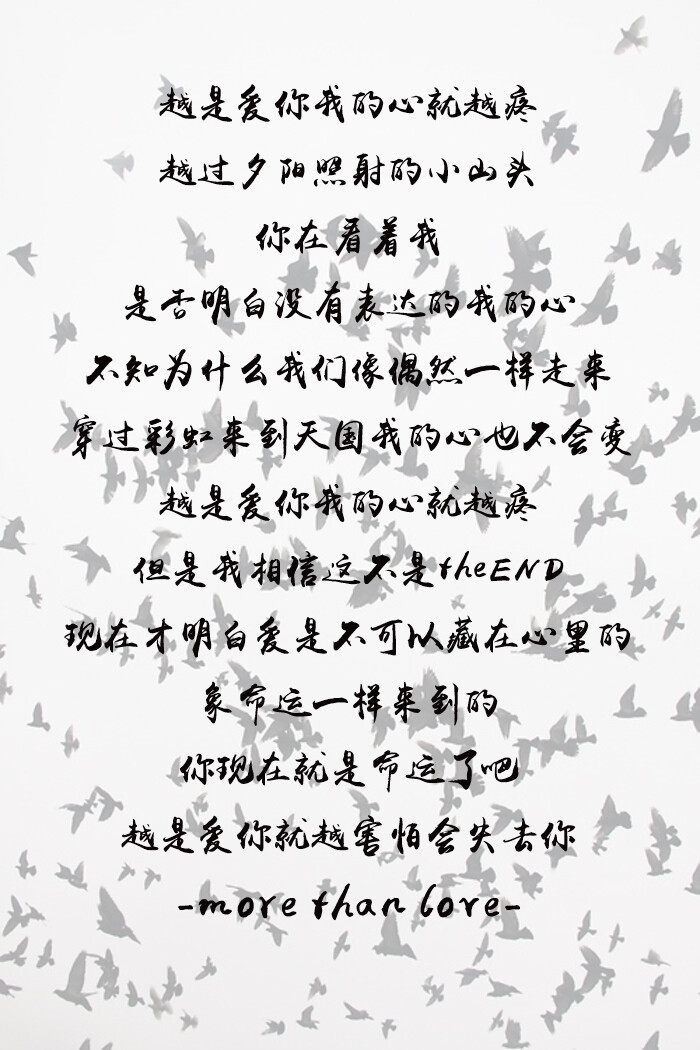 越是爱你我的心就越疼
越过夕阳照射的小山头
你在看着我
是否明白没有表达的我的心
不知为什么我们像偶然一样走来
穿过彩虹来到天国我的心也不会变
越是爱你我的心就越疼
但是我相信这不是theEND
现在才明白爱是不可以藏在心里的
象命运一样来到的
你现在就是命运了吧
越是爱你就越害怕会失去你
-more than love-